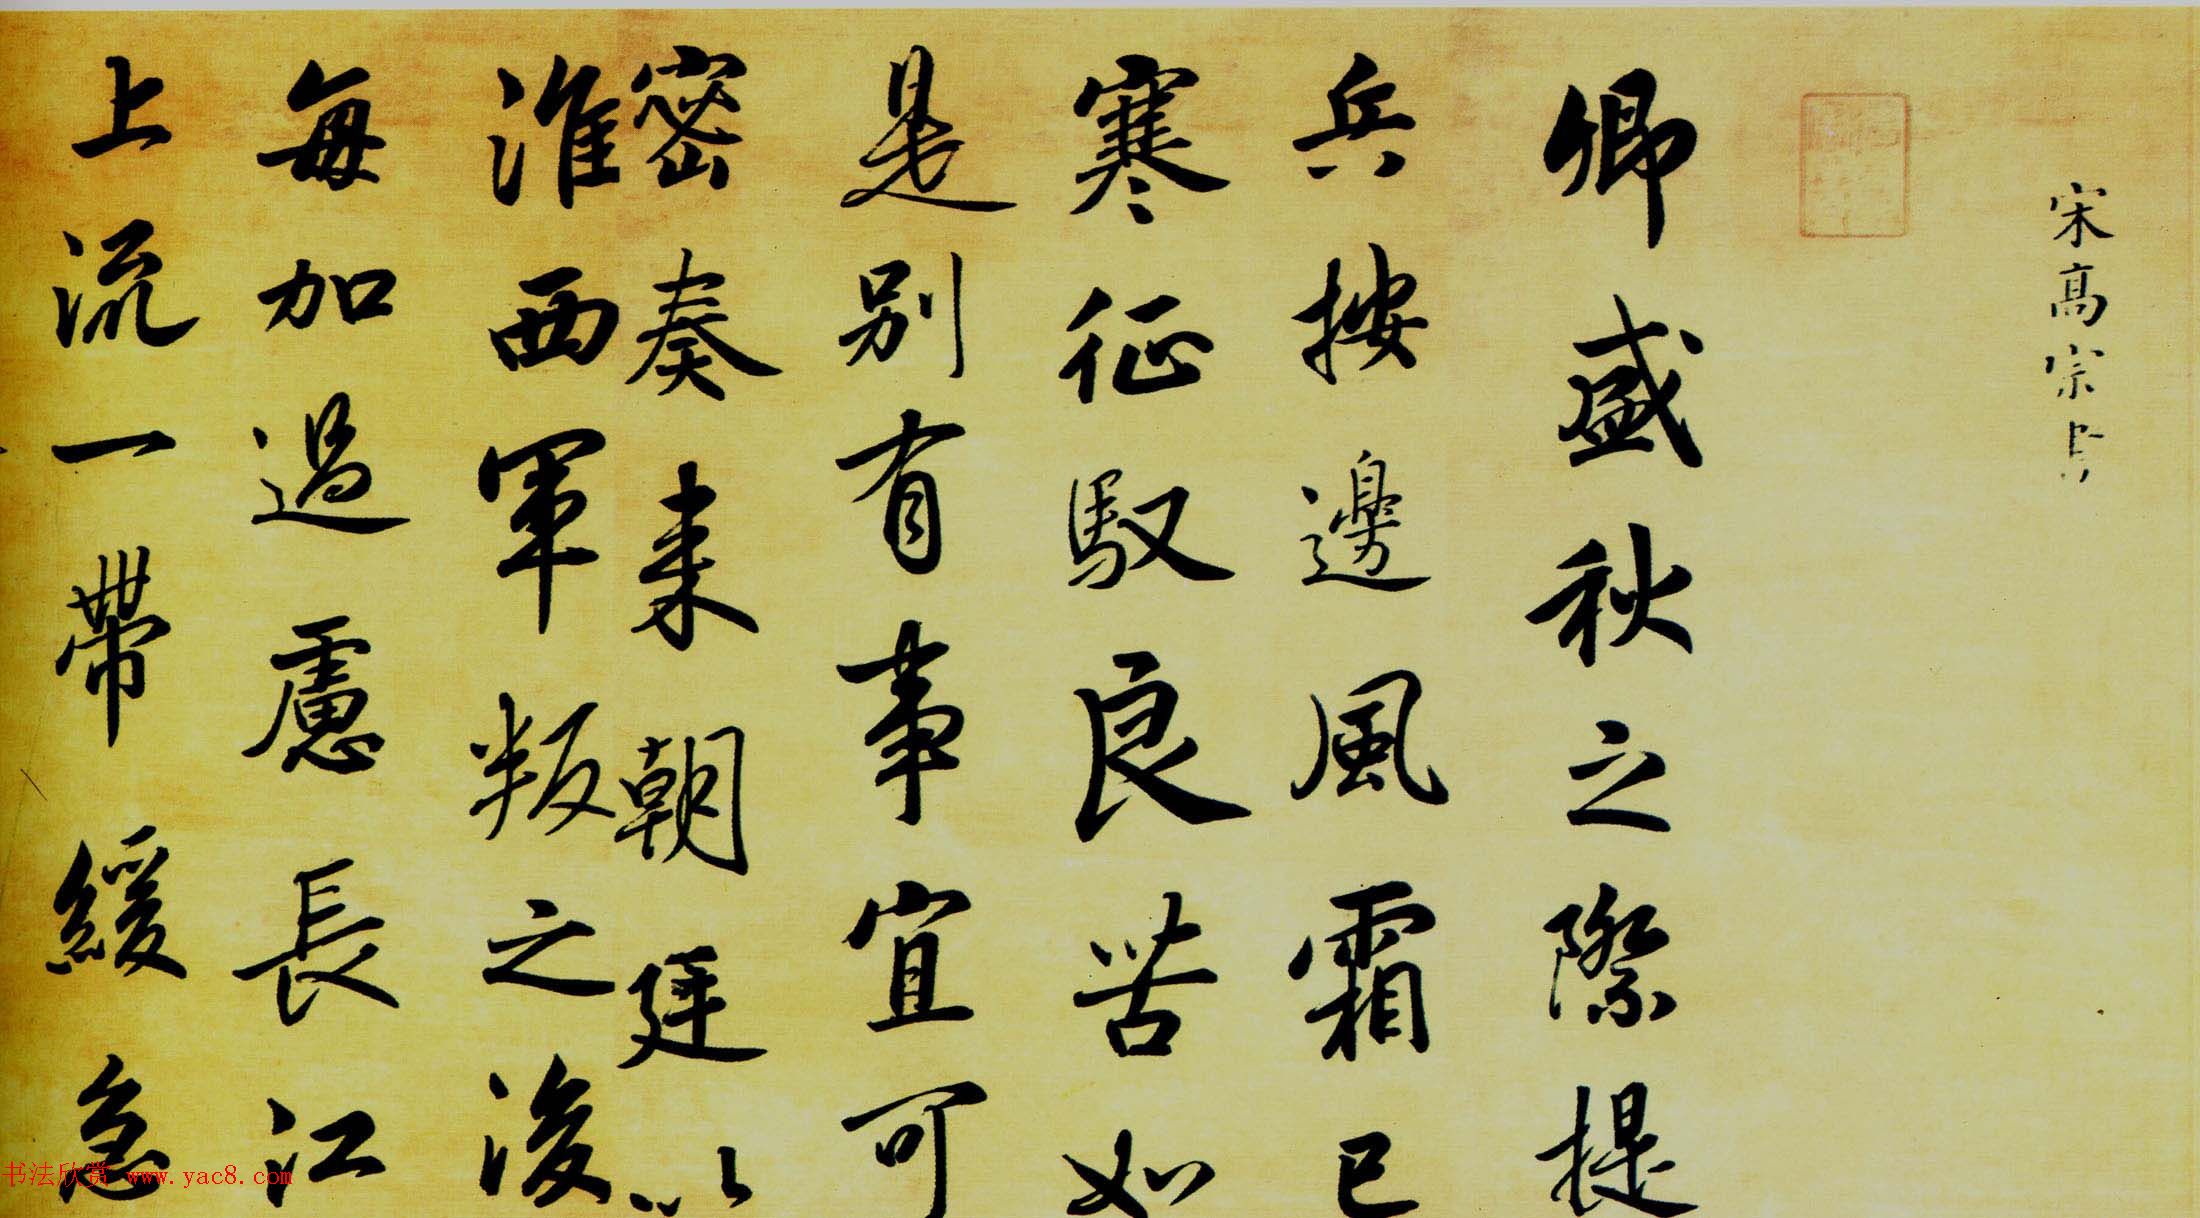 宋高宗
卿盛秋之際提
兵按邊風霜已
寒征馭良苦如
是別有事宜可
密奏來朝廷以
淮西軍叛之後
每加過慮長江
上流一帶緩急
书法欣赏 www.yac8.com